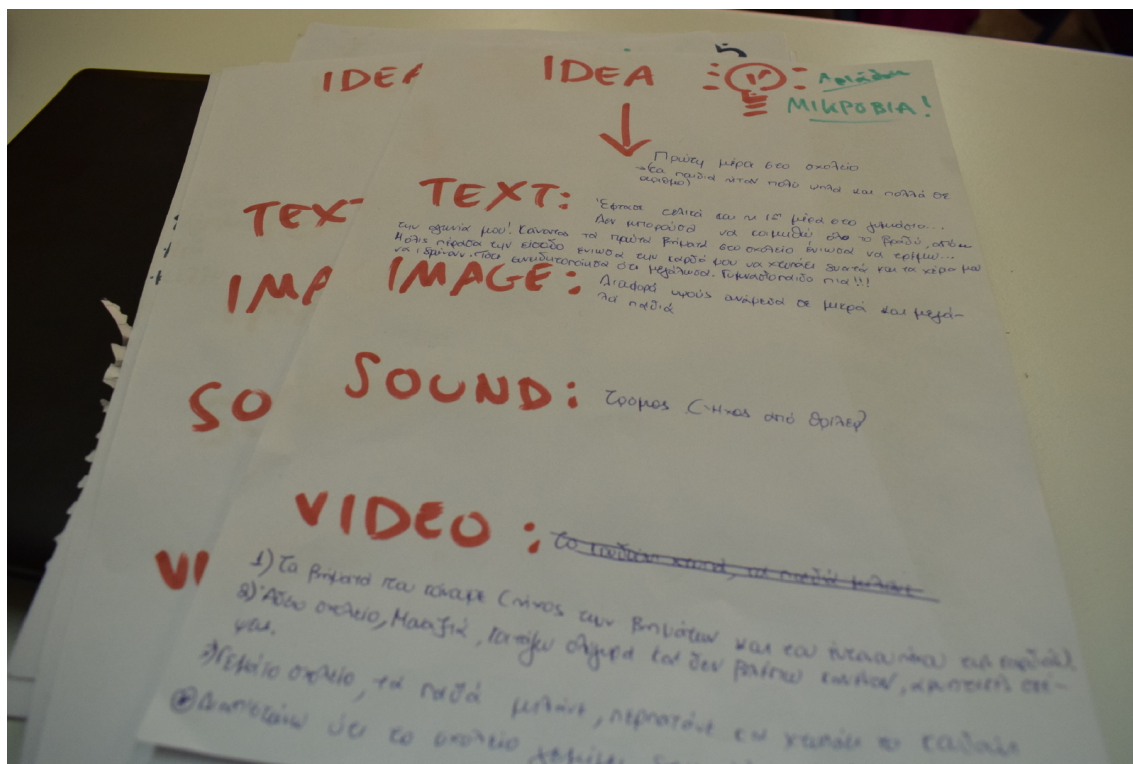 IDEA
IDEA
ΜΙΚΡΟΒΙΑ!
Πρώτη μέρα στο σχολείο
τα παιδιά ήταν πολύ ψηλά και πολλά σε
αριθμό)
TEXT:
Έφτασε επιτέλους και η 1η μέρα στο γυμνάσιο...
Δεν μπορούσα να κοιμηθώ όλο το βράδυ, από
την αγωνία μου! Κάνοντας τα πρώτα βήματα στο σχολείο ένιωσα να τρέμω...
Μόλις πέρασα την είσοδο ένιωσα την καρδιά μου να χτυπάει δυνατά και τα χέρια μου
να ιδρώνουν. Τότε συνειδητοποίησα ότι μεγάλωσα. Γυμνασιόπαιδο πια!!!
IMAGE:
Διαφορά ύψους ανάμεσα σε μικρά και μεγά-
λα παιδιά
SOUND:
τρόμος (ήχος από θρίλερ)
VIDEO:
1) Τα βήματα που κάναμε (ήχος των βημάτων και του της καρδιάς)
2) Άδειο σχολείο, κοιτάζω και δεν βλέπω κανέναν,
3) Γεμάτο σχολείο, τα παιδιά μιλάνε, περπατάνε και χτυπάει το κουδούνι
Διαπιστώνω ότι το σχολείο
TEX
IMA
SO
VI